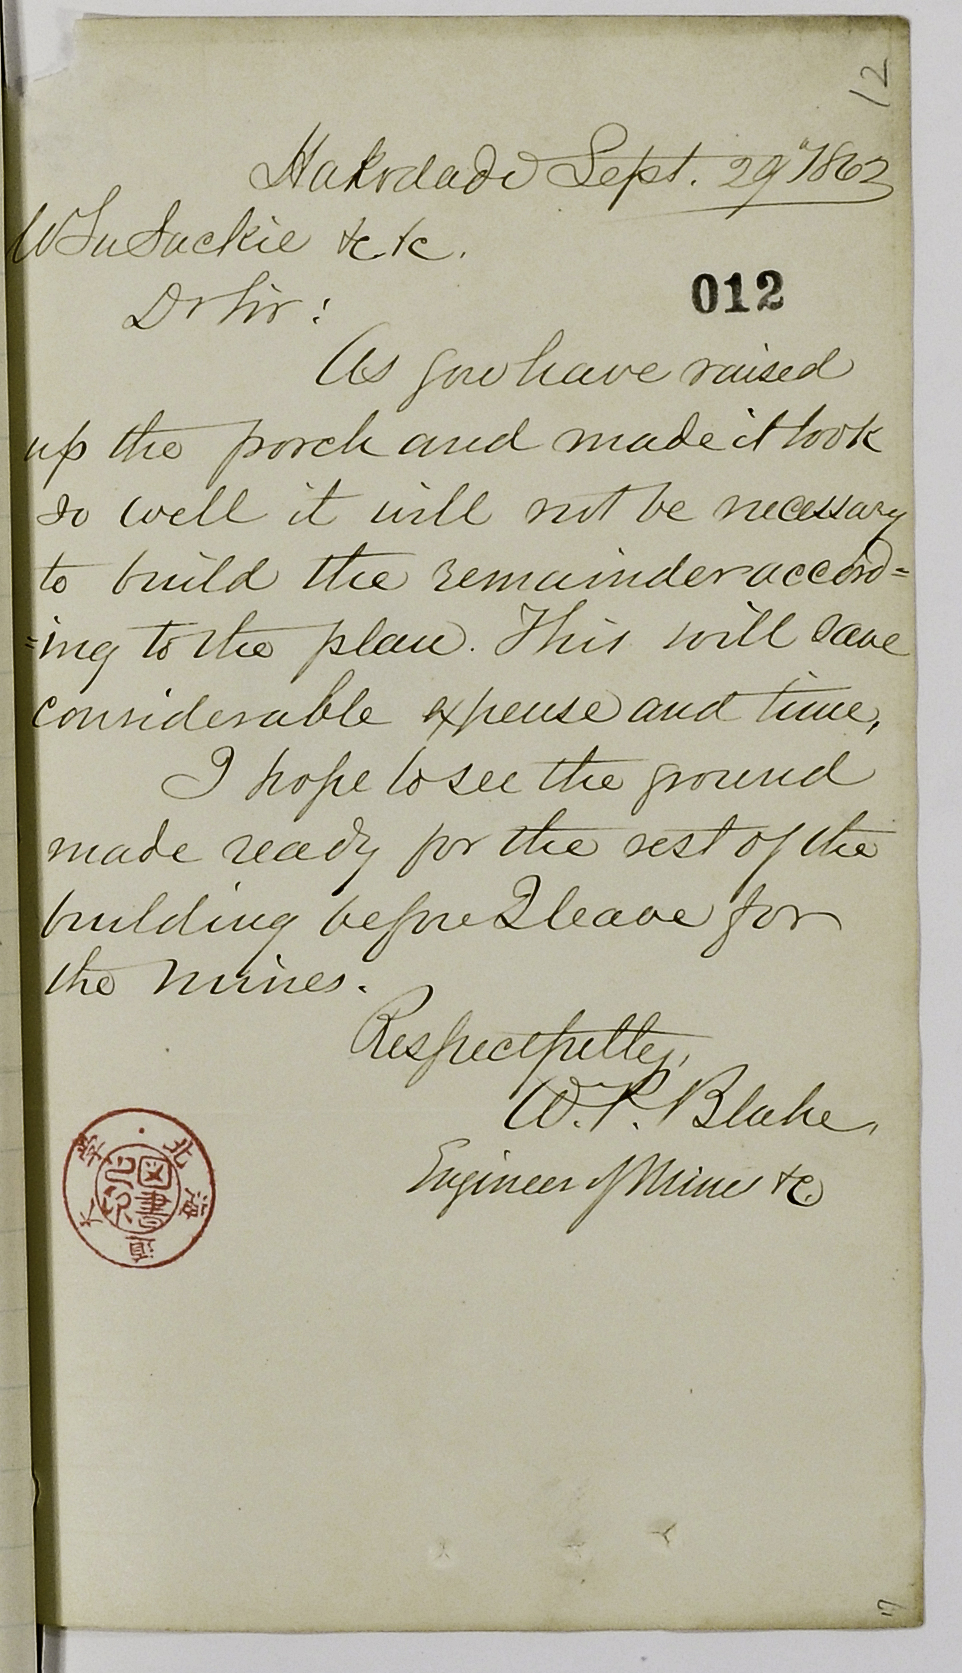 12
Hakodade Sept. 29" 1862
&c &c.
Dr Sir:
012
As you have raised
up the porch and made it look
so well it will not be necessary
to build the remainder accord=
=ing to the plan. This will save
considerable expense and time,
I hope to see the ground
made ready for the rest of the
building before I leave for
the Mines.
Respectfully,
W. P. Blake,
Engineer of Mines &c.
北海道大学
図書之印